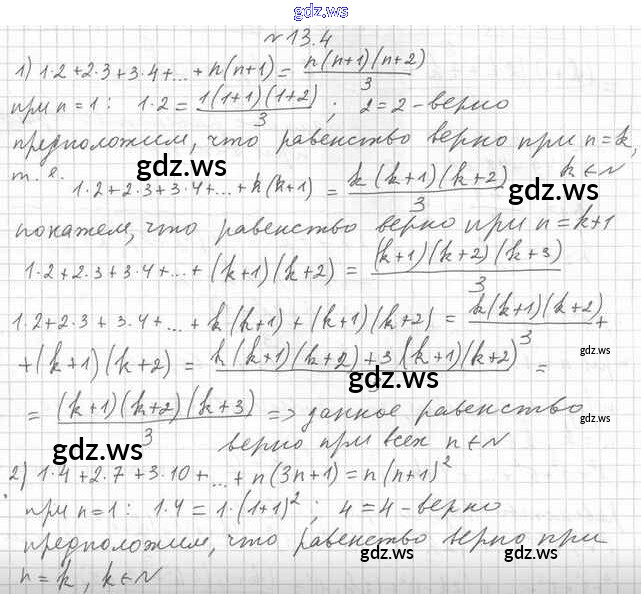 gdz.ws
№13.4
1) 1·2+2·3+3·4+...+n(n+1) = n(n+1)(n+2)/3
при n=1: 1·2 = 1(1+1)(1+2)/3; 2=2 - верно
предположим, что равенство верно при n=k,
т. е. gdz.ws k∈N
1·2+2·3+3·4+...+k(k+1) = k(k+1)(k+2)/3 gdz.ws
покажем, что равенство верно при n=k+1
1·2+2·3+3·4+...+(k+1)(k+2) = (k+1)(k+2)(k+3)/3
1·2+2·3+3·4+...+k(k+1)+(k+1)(k+2) = k(k+1)(k+2)/3 +
+(k+1)(k+2) = k(k+1)(k+2)+3(k+1)(k+2)/3 = gdz.ws
gdz.ws
= (k+1)(k+2)(k+3)/3 => данное равенство gdz.ws
gdz.ws верно при всех n∈N
2) 1·4+2·7+3·10+...+n(3n+1) = n(n+1)²
при n=1: 1·4 = 1·(1+1)²; 4=4 - верно
предположим, что равенство верно при
gdz.ws gdz.ws
n=k, k∈N